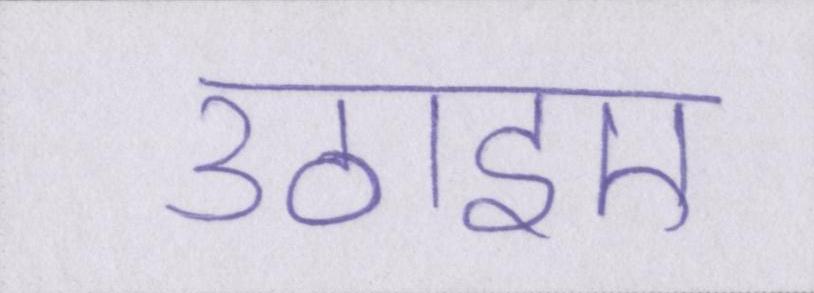 उठाइए